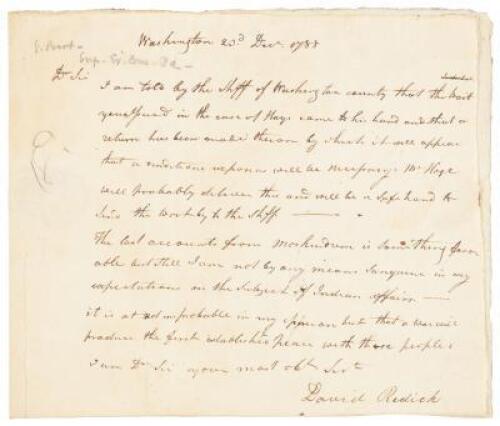 Washington 23d Decr. 1788
Dr Sir
I am told by the Shff of Washington county that the writ
you Issued in the case of Hoge came to his hand and that a
return has been made thereon by which it will appear
that a venditione exponas will be necessary. Mr Hoge
will probably deliver this and will be a safe hand to
send the writ by to the Shff
The last accounts from Muskindeum is something favor
able but still I am not by any means sanguine in my
expectations on the Subject of Indian affairs
it is at improbable in my opinion but that a war will
produce the first established peace with those people
I am Dr Sir your most obt Servt
David Redick